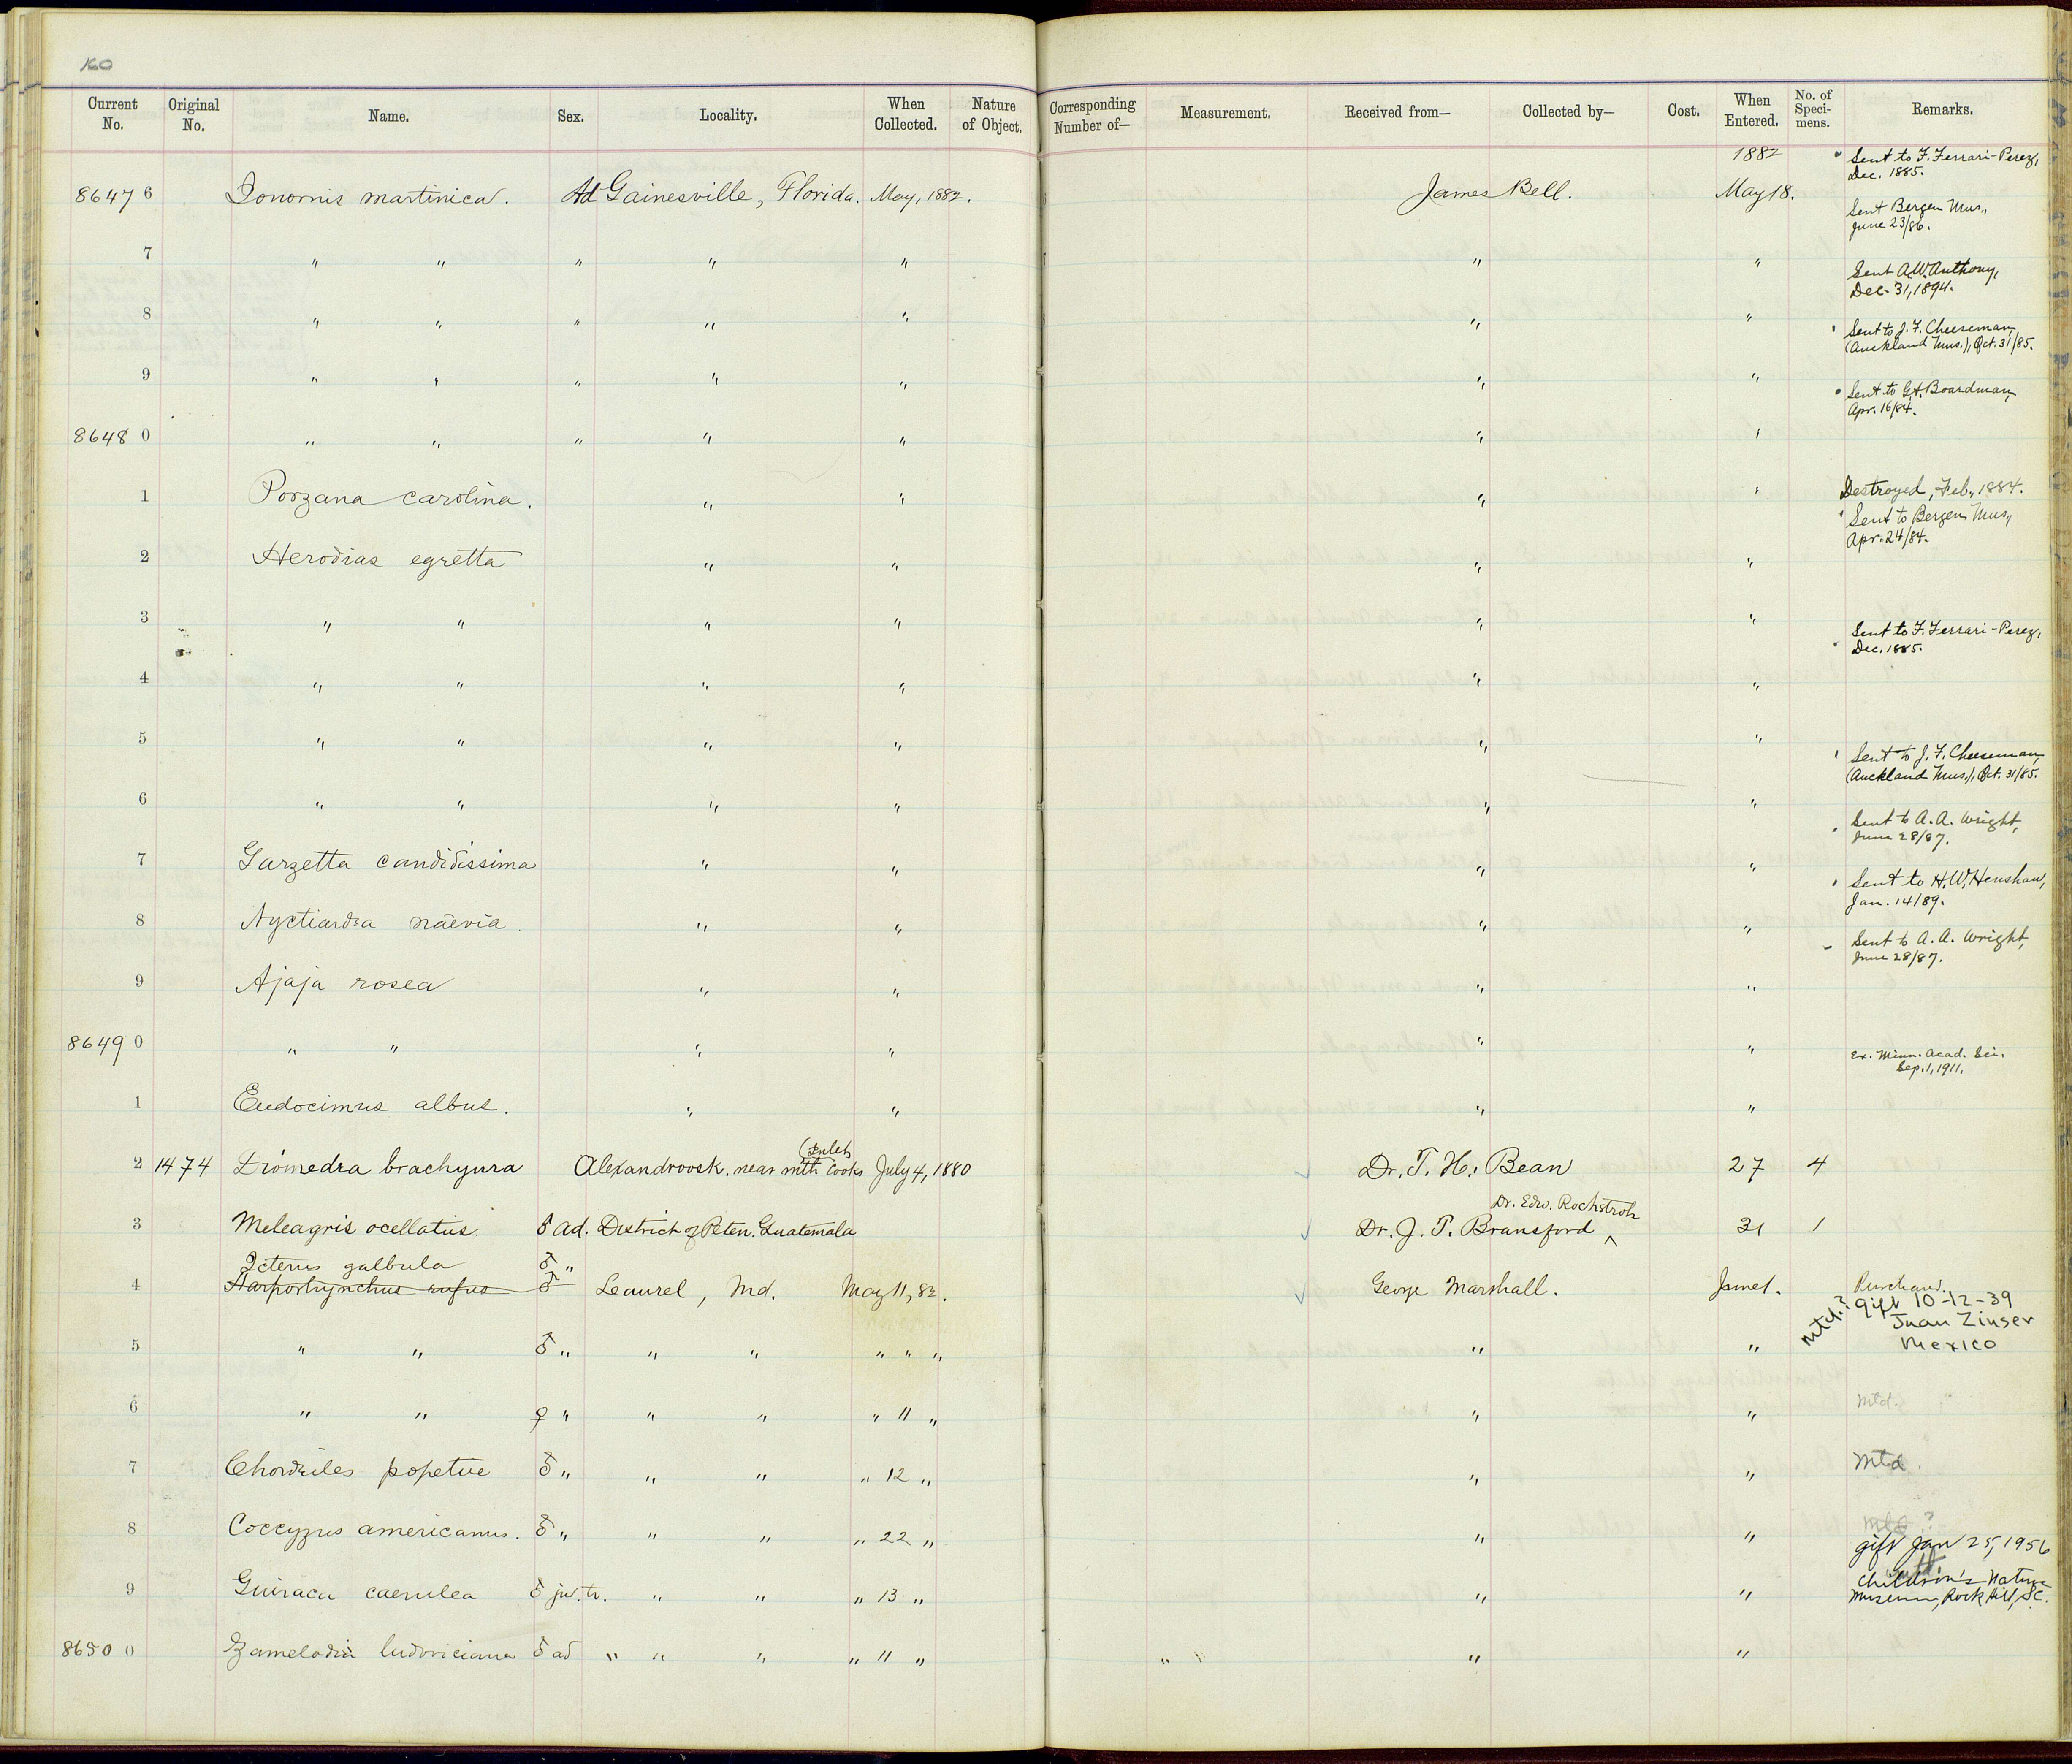 160
Current No. Original No. Name. Sex. Locality. When Collected. Nature of Object. Corresponding Number of— Measurement. Received from— Collected by— Cost. When Entered. No. of Specimens. Remarks.
1882 Sent to F. Ferrari-Perez,
Dec. 1885.
86476 Ionornis martinica. Ad Gainesville, Florida. May, 1882. James Bell. May 18.
Sent Bergen Mus.,
June 23/86.
7 " " " " " " "
Sent A.W. Anthony,
Dec. 31, 1894.
8 " " " " " " "
Sent to J. F. Cheeseman,
(Auckland Mus.), Oct. 31/85.
9 " " " " " " "
Sent to G.A. Boardman,
Apr. 16/84.
86480 " " " " " " "
1 Porzana carolina. " " " " Destroyed, Feb., 1884.
Sent to Bergen Mus.,
Apr. 24/84.
2 Herodias egretta " " " "
3 " " " " " "
Sent to F. Ferrari-Perez,
Dec. 1885.
4 " " " " " "
5 " " " " " "
Sent to J. F. Cheeseman,
(Auckland Mus.), Oct. 31/85.
6 " " " " " "
Sent to A. A. Wright,
June 28/87.
7 Garzetta candidissima " " " "
Sent to H. W. Henshaw,
Jan. 14/89.
8 Nyctiardea naevia. " " " "
Sent to A. A. Wright,
June 28/87.
9 Ajaja rosea " " " "
86490 " " " " " "
Ex. Minn. Acad. Sci.
Sep. 1, 1911.
1 Eudocimus albus. " " " "
(Inlet)
2 1474 Diomedea brachyura Alexandrovsk. near mth Cooks July 4, 1880 Dr. T. H. Bean 27 4
Dr. Edw. Rockstroh
3 Meleagris ocellatus. ♂ ad. District of Peten. Guatemala Dr. J. T. Bransford ^ 31 1
Icterus galbula ♂ "
4 Harporhynchus rufus ♂ Laurel, Md. May 11, 82. George Marshall. June 1. Purchased.
mtd.? gift 10-12-39
Juan Zinser
Mexico
5 " " ♂ " " " " " " " "
6 " " ♀ " " " " 11 " " " Mtd.
7 Chordeiles popetue ♂ " " " " 12 " " " Mtd.
8 Coccyzus americanus. ♂ " " " " 22 " " " Mtd ?
gift Jan 25, 1956
9 Guiraca caerulea ♂ juv. tr. " " " 13 " " "
Children's Nature
Museum, Rock Hill, S.C.
86500 Zamelodia ludoviciana ♂ ad " " " " 11 " " " " "